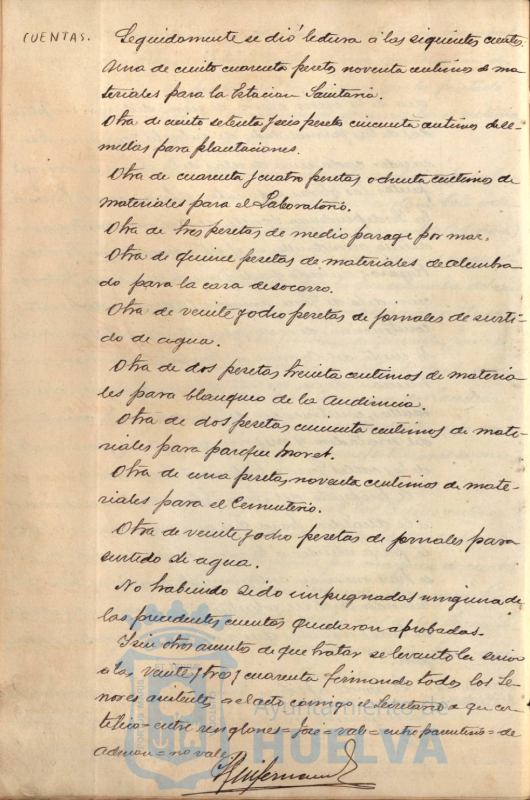 CUENTAS.
Seguidamente se dió lectura á las siguientes cuentas.
Una de ciento cuarenta pesetas noventa centimos de ma
teriales para la Estacion Sanitaria.
Otra de ciento setenta y seis pesetas cincuenta centimos de se
millas para plantaciones.
Otra de cuarenta y cuatro pesetas ochenta centimos de
materiales para el Laboratorio.
Otra de tres pesetas de medio pasage por mar.
Otra de quince pesetas de materiales de alumbra
do para la casa de socorro.
Otra de veinte y ocho pesetas de jornales de surti-
do de agua.
Otra de dos pesetas treinta centimos de materia
les para blanqueo de la Audiencia.
Otra de dos pesetas cincuenta centimos de mate-
riales para parque Moret.
Otra de una peseta, noventa centimos de mate-
riales para el Cementerio.
Otra de veinte y ocho pesetas de jornales para
surtido de agua.
No habiendo sido impugnadas ninguna de
las precedentes cuentas quedaron aprobadas.
Y sin otros asuntos de que tratar se levantó la sesion
a las veinte y tres y cuarenta firmando todos los Se-
ñores asistentes al acto conmigo el Secretario de que cer
tifico = entre renglones = José = vale = entre parentesis = de
= no vale
Ayuntamiento de
HUELVA